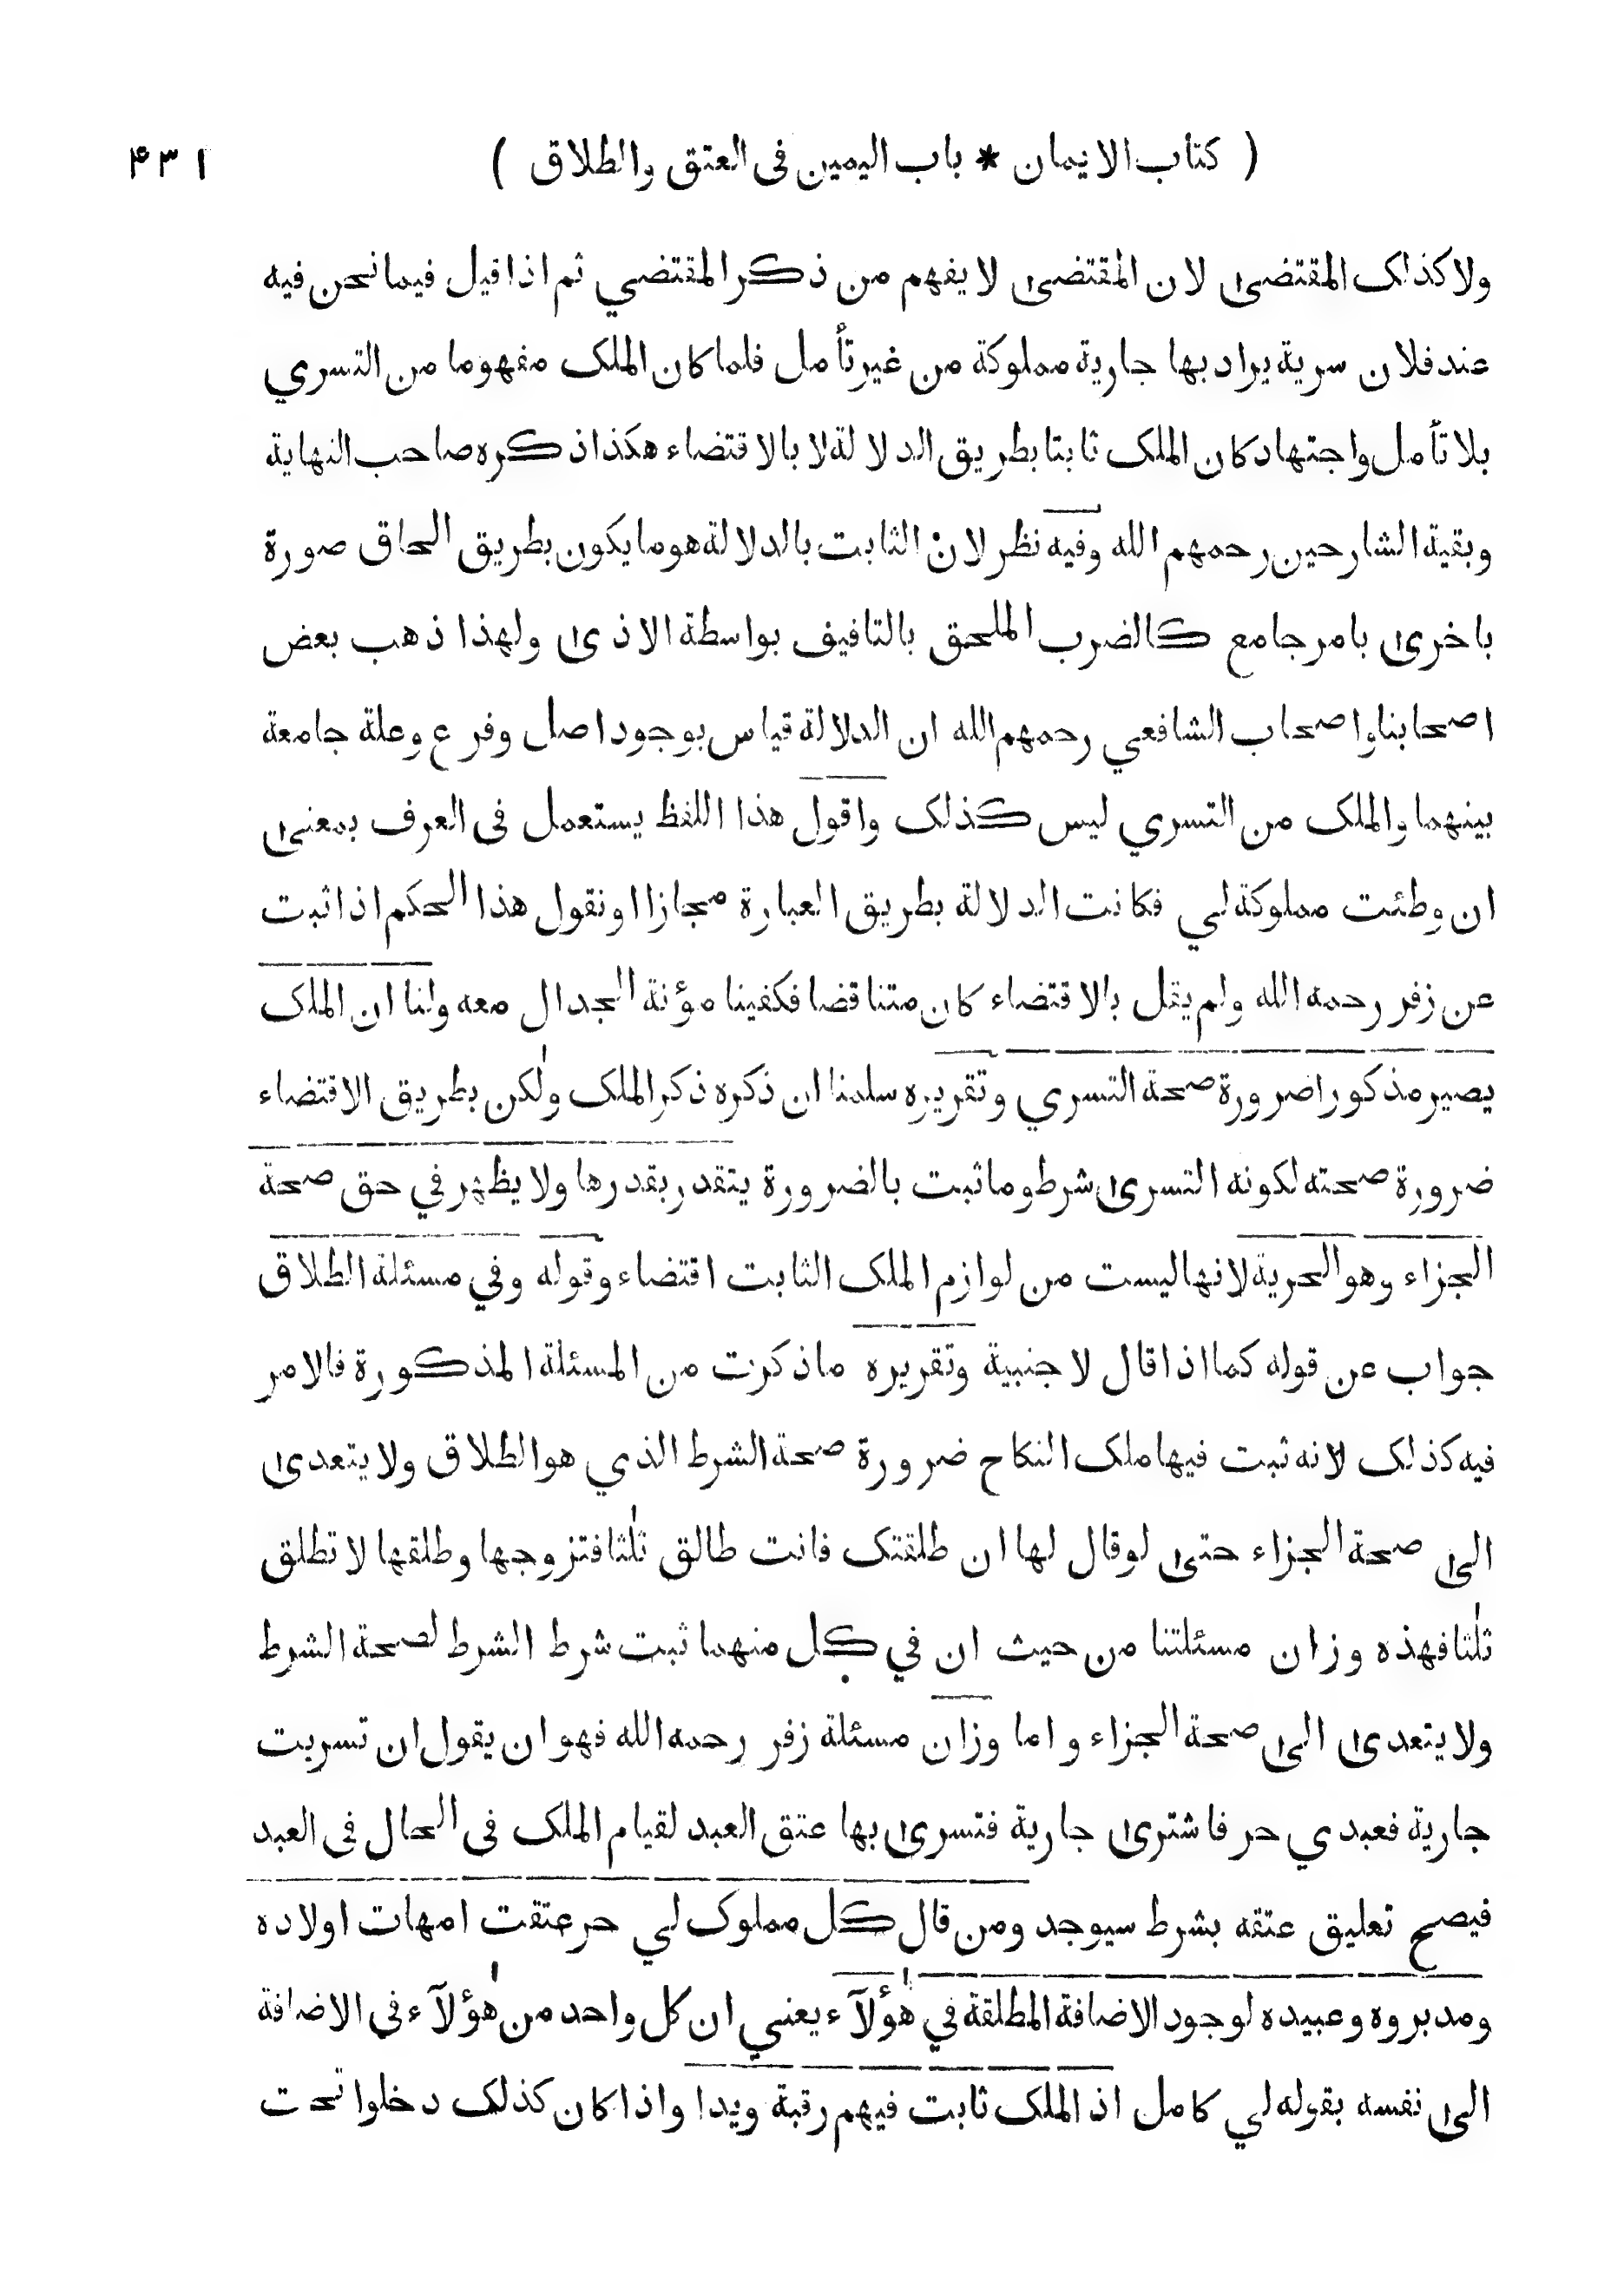 ( كتاب الايمان * باب اليمين فى العتق والطلاق ) ۴۳۱
ولا كذلك المقتضى لان المقتضى لا يفهم من ذكر المقتضي ثم اذا قيل فيما نحن فيه
عند فلان سرية يراد بها جارية مملوكة من غير تأمل فلما كان الملك مفهوما من التسري
بلا تأمل واجتهاد كان الملك ثابتا بطريق الدلالة لا بالاقتضاء هكذا ذكره صاحب النهاية
وبقية الشارحين رحمهم الله وفيه نظر لان الثابت بالدلالة هو ما يكون بطريق الحاق صورة
باخرى بامر جامع كالضرب الملحق بالتافيف بواسطة الاذى ولهذا ذهب بعض
اصحابنا واصحاب الشافعي رحمهم الله ان الدلالة قياس بوجود اصل وفرع وعلة جامعة
بينهما والملك من التسري ليس كذلك واقول هذا اللفظ يستعمل فى العرف بمعنى
ان وطئت مملوكة لي فكانت الدلالة بطريق العبارة مجازا او نقول هذا الحكم اذا ثبت
عن زفر رحمه الله ولم يقل بالاقتضاء كان متناقضا فكفينا مؤنة الجدال معه ولنا ان الملك
يصير مذكورا ضرورة صحة التسري وتقريره سلمنا ان ذكره ذكر الملك ولٰكن بطريق الاقتضاء
ضرورة صحته لكونه التسرى شرط وما ثبت بالضرورة يتقدر بقدرها ولا يظهر في حق صحة
الجزاء وهو الحرية لانها ليست من لوازم الملك الثابت اقتضاء وقوله وفي مسئلة الطلاق
جواب عن قوله كما اذا قال لاجنبية وتقريره ما ذكرت من المسئلة المذكورة فالامر
فيه كذلك لانه ثبت فيها ملك النكاح ضرورة صحة الشرط الذي هو الطلاق ولا يتعدى
الى صحة الجزاء حتى لو قال لها ان طلقتك فانت طالق ثلٰثا فتزوجها وطلقها لا تطلق
ثلٰثا فهذه وزان مسئلتنا من حيث ان في كل منهما ثبت شرط الشرط لصحة الشرط
ولا يتعدى الى صحة الجزاء واما وزان مسئلة زفر رحمه الله فهو ان يقول ان تسريت
جارية فعبدي حر فاشترى جارية فتسرى بها عتق العبد لقيام الملك فى الحال فى العبد
فيصح تعليق عتقه بشرط سيوجد ومن قال كل مملوك لي حر عتقت امهات اولاده
ومدبروه وعبيده لوجود الاضافة المطلقة في هٰؤلآء يعني ان كل واحد من هٰؤلآء في الاضافة
الى نفسه بقوله لي كامل اذ الملك ثابت فيهم رقبة ويدا واذا كان كذلك دخلوا تحت